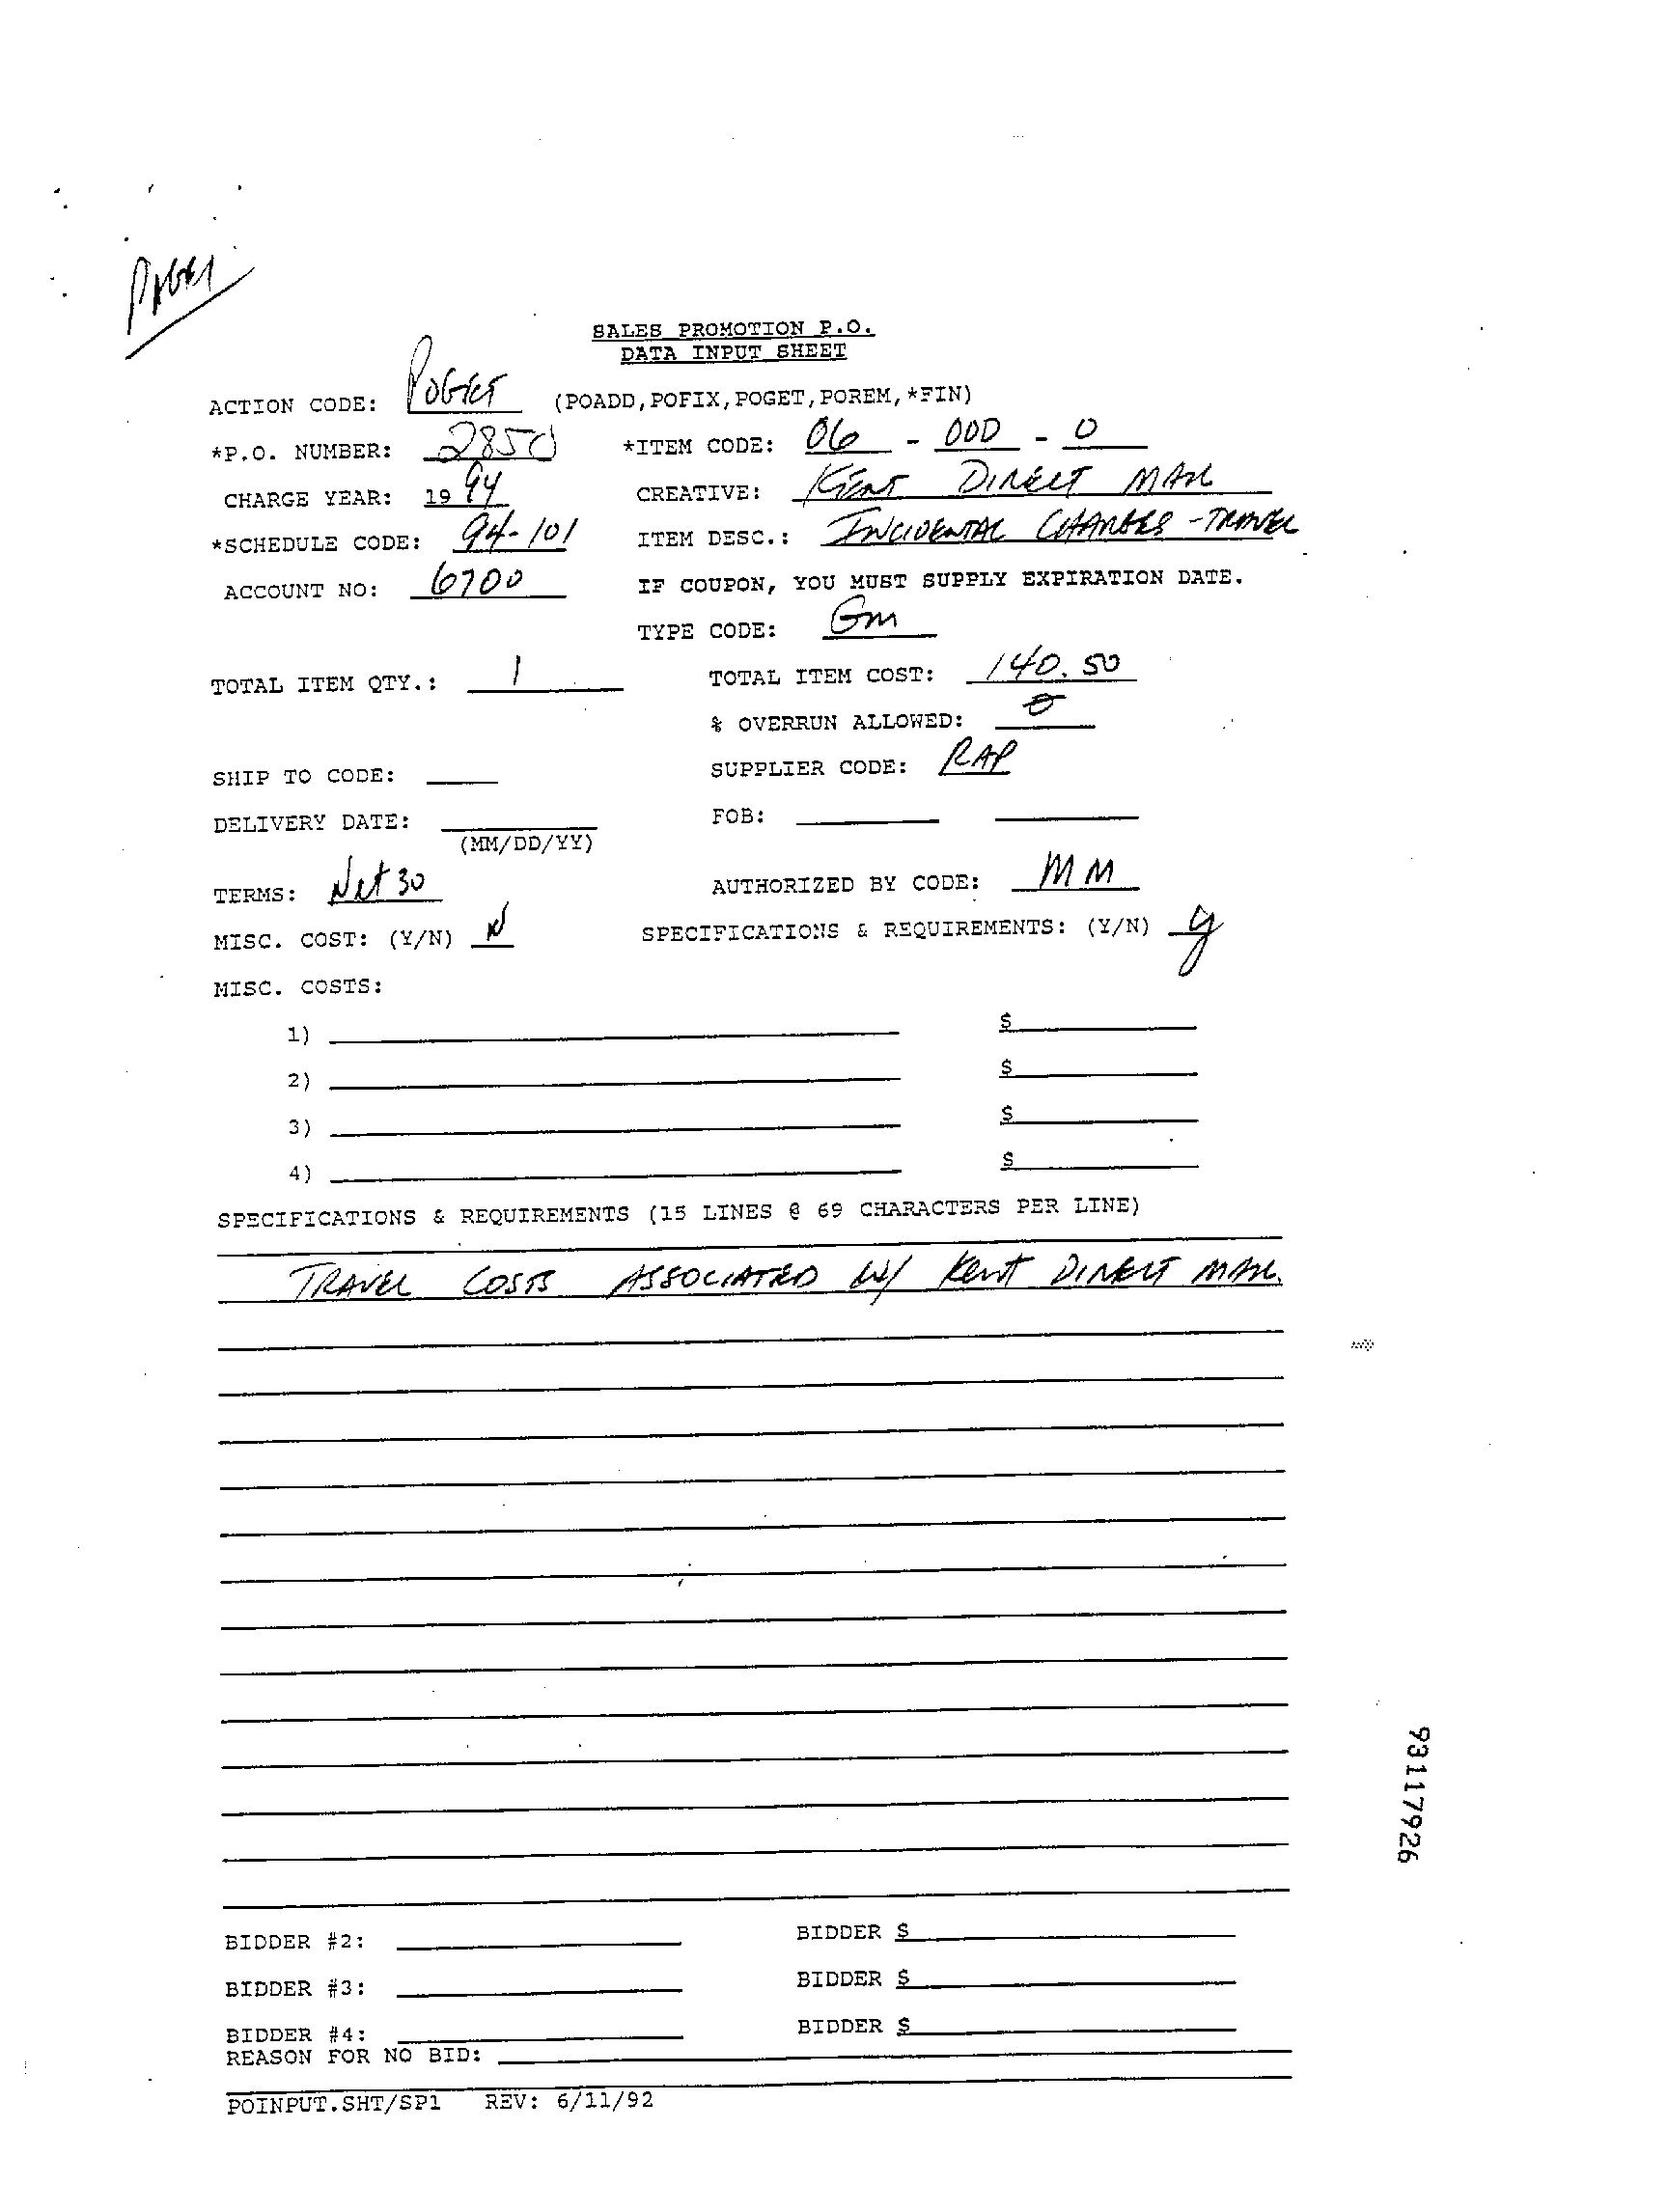 SALES PROMOTION P.O.
DATA INPUT SHEET
ACTION CODE: POGET (POADD,POFIX,POGET,POREM,*FIN)
*P.O. NUMBER: 2850 *ITEM CODE: 06 - 000 - 0
CHARGE YEAR: 19 94 CREATIVE: KENT DIRECT MAIL
*SCHEDULE CODE: 94-101 ITEM DESC.: INCIDENTAL CHARGES - TRAVEL
ACCOUNT NO: 6700 IF COUPON, YOU MUST SUPPLY EXPIRATION DATE.
TYPE CODE: GM
TOTAL ITEM QTY.: 1 TOTAL ITEM COST: 140.50
% OVERRUN ALLOWED: 0
SHIP TO CODE: SUPPLIER CODE: RAP
DELIVERY DATE: FOB:
(MM/DD/YY)
TERMS: Net 30 AUTHORIZED BY CODE: MM
MISC. COST: (Y/N) N SPECIFICATIONS & REQUIREMENTS: (Y/N) y
MISC. COSTS:
1) $
2) $
3) $
4) $
SPECIFICATIONS & REQUIREMENTS (15 LINES @ 69 CHARACTERS PER LINE)
TRAVEL COSTS ASSOCIATED W/ Kent DIRECT MAIL.
BIDDER #2: BIDDER $
BIDDER #3: BIDDER $
BIDDER #4: BIDDER $
REASON FOR NO BID:
POINPUT.SHT/SP1 REV: 6/11/92
93117926